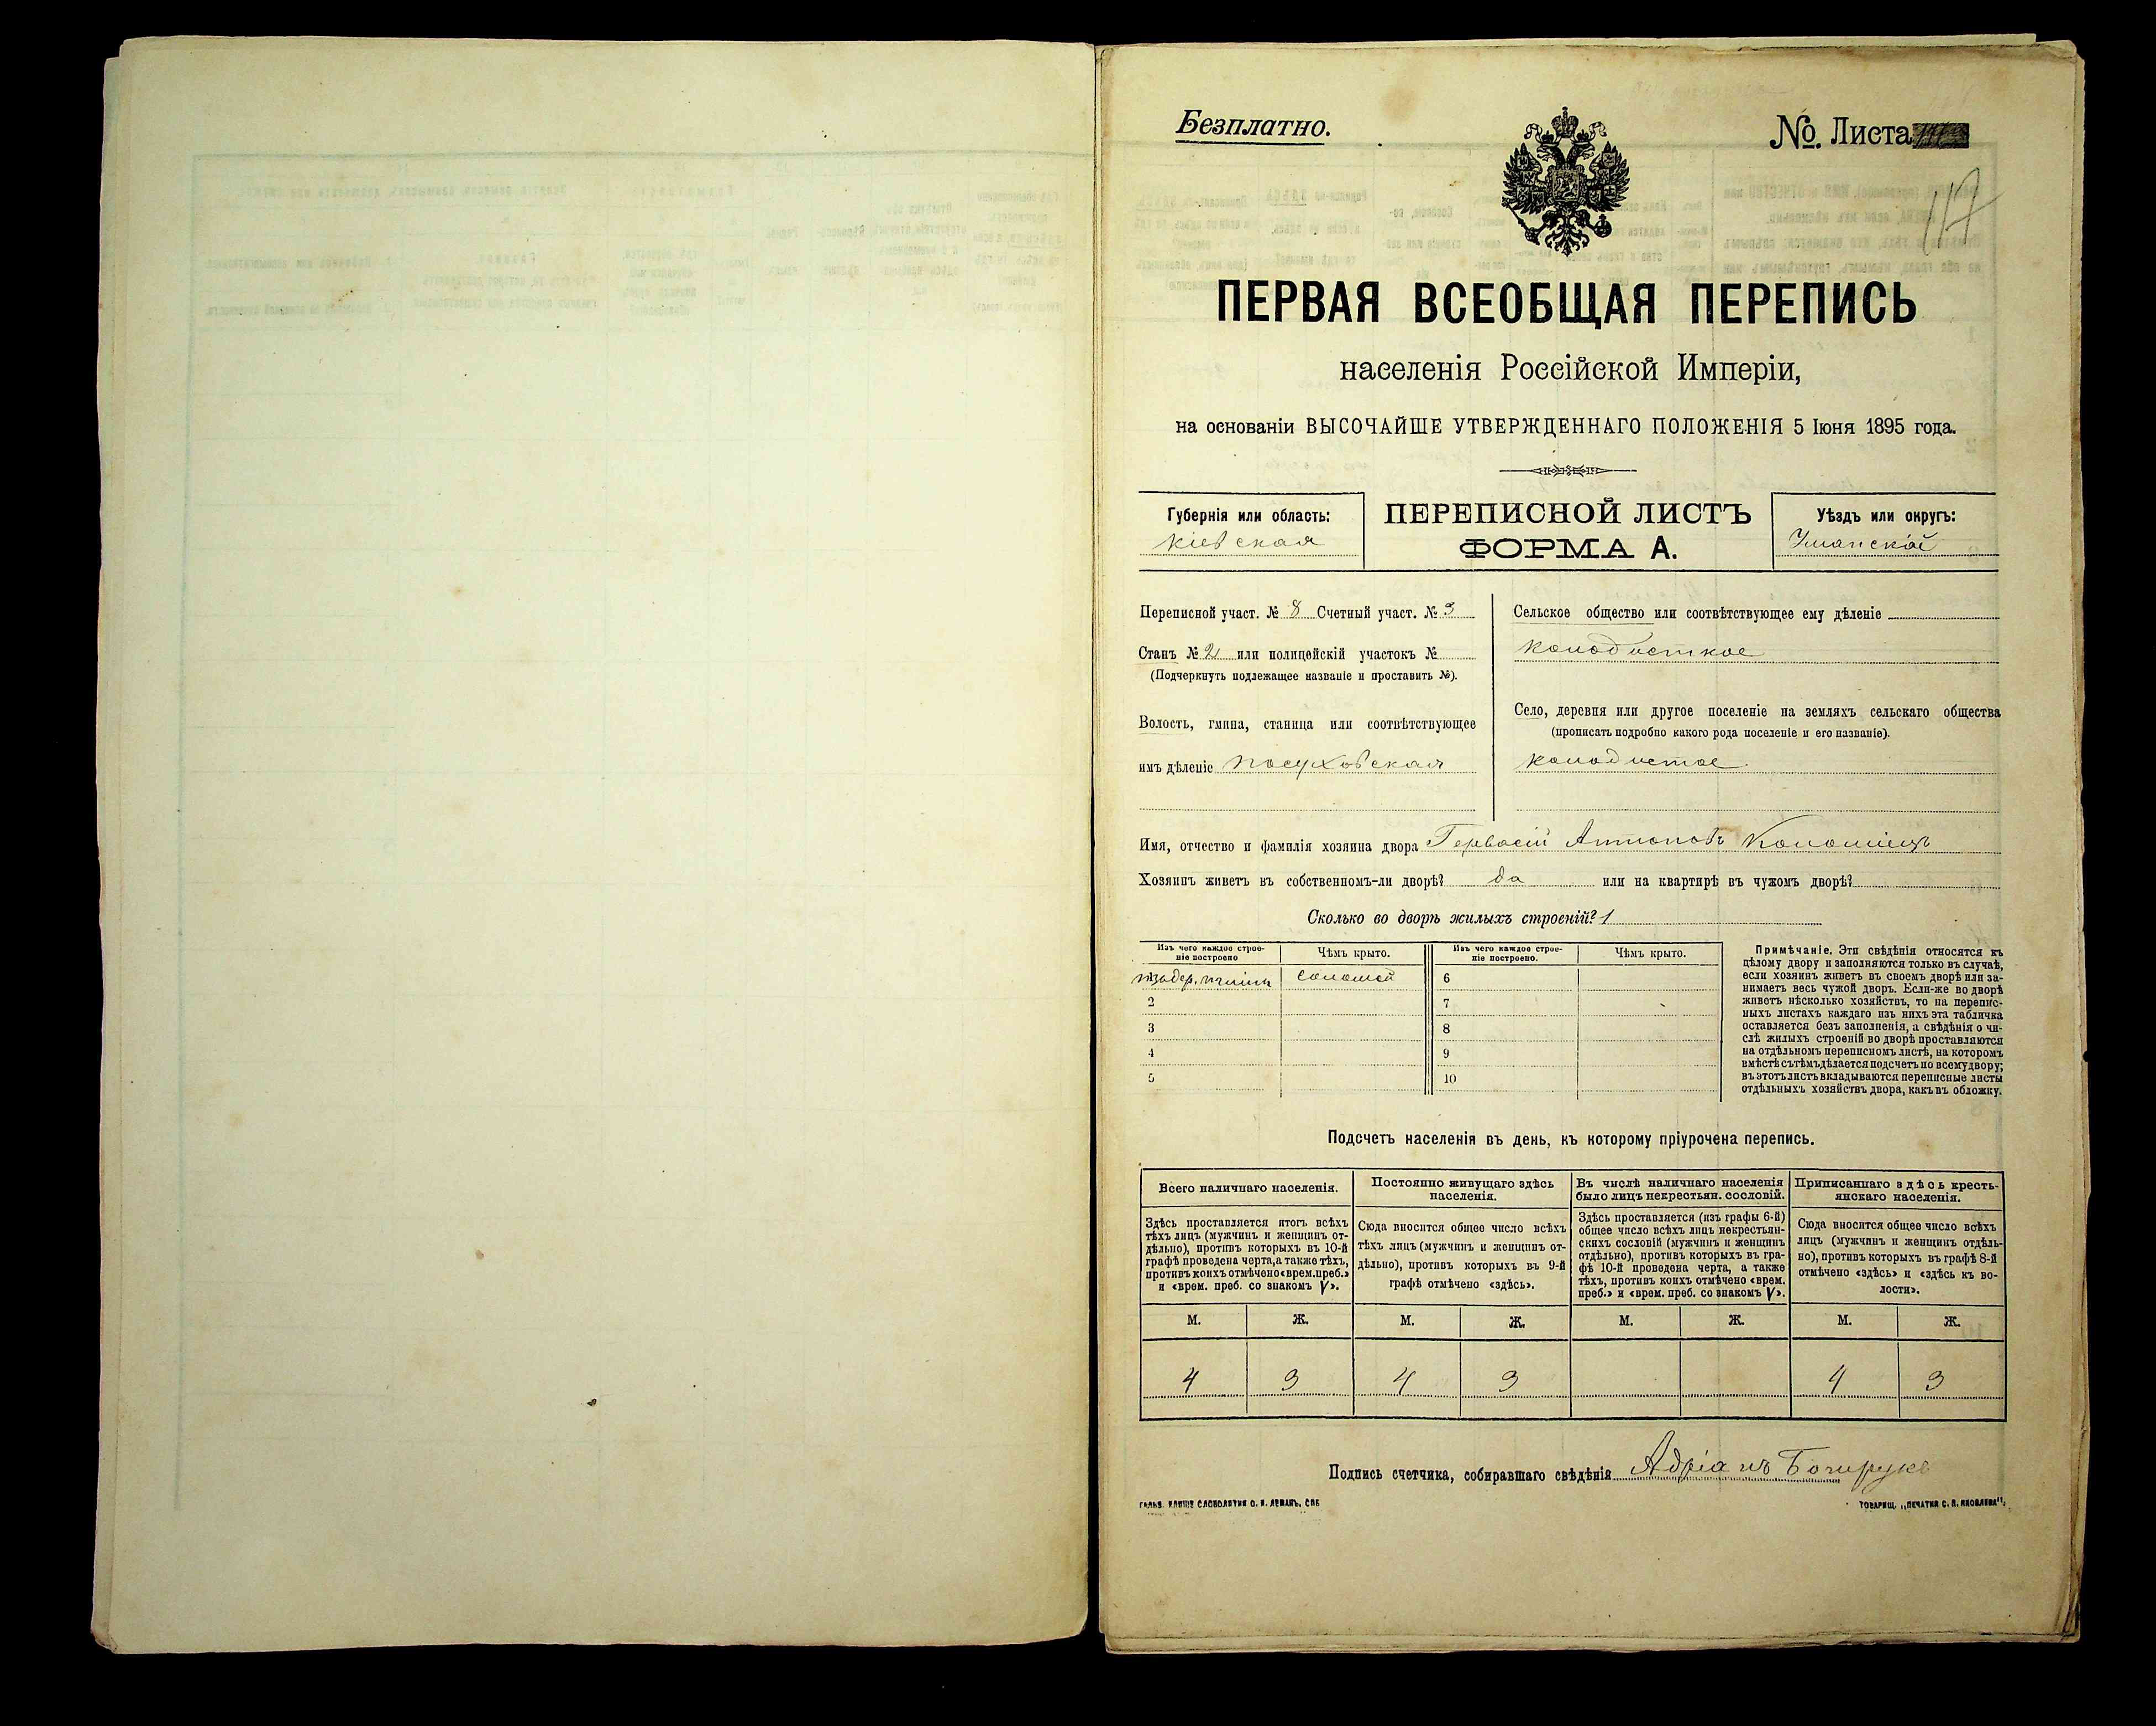 Безплатно.
№. Листа
117
ПЕРВАЯ ВСЕОБЩАЯ ПЕРЕПИСЬ
населенія Россійской Имперіи,
на основаніи ВЫСОЧАЙШЕ УТВЕРЖДЕННАГО ПОЛОЖЕНІЯ 5 Іюня 1895 года.
Губернія или область:
Кіевская
ПЕРЕПИСНОЙ ЛИСТЪ
ФОРМА А.
Уѣздъ или округъ:
Уманскій
Переписной участ. № 8 Счетный участ. № 3
Станъ № 2 или полицейскій участокъ №
(Подчеркнуть подлежащее названіе и проставить №).
Волость, гмина, станица или соотвѣтствующее
имъ дѣленіе Посуховская
Сельское общество или соотвѣтствующее ему дѣленіе
Колодисткое
Село, деревня или другое поселеніе на земляхъ сельскаго общества
(прописать подробно какого рода поселеніе и его названіе).
Колодистое
Имя, отчество и фамилія хозяина двора Гервасій Антоновъ Коломіецъ
Хозяинъ живетъ въ собственномъ-ли дворѣ? да или на квартирѣ въ чужомъ дворѣ?
Сколько во дворѣ жилыхъ строеній? 1
Изъ чего каждое строе-
ніе построено
Чѣмъ крыто.
Изъ чего каждое строе-
ніе построено.
Чѣмъ крыто.
соломой 6
2 7
3 8
4 9
5 10
Примѣчаніе. Эти свѣдѣнія относятся къ
цѣлому двору и заполняются только въ случаѣ,
если хозяинъ живетъ въ своемъ дворѣ или за-
нимаетъ весь чужой дворъ. Если-же во дворѣ
живетъ нѣсколько хозяйствъ, то на перепис-
ныхъ листахъ каждаго изъ нихъ эта табличка
оставляется безъ заполненія, а свѣдѣнія о чи-
слѣ жилыхъ строеній во дворѣ проставляются
на отдѣльномъ переписномъ листѣ, на которомъ
вмѣстѣ съ тѣмъ дѣлается подсчетъ по всему двору;
въ этотъ листъ вкладываются переписные листы
отдѣльныхъ хозяйствъ двора, какъ въ обложку.
Подсчетъ населенія въ день, къ которому пріурочена перепись.
Всего наличнаго населенія.
Здѣсь проставляется итогъ всѣхъ
тѣхъ лицъ (мужчинъ и женщинъ от-
дѣльно), противъ которыхъ въ 10-й
графѣ проведена черта, а также тѣхъ,
противъ коихъ отмѣчено «врем. преб.»
и «врем. преб. со знакомъ V».
Постоянно живущаго здѣсь
населенія.
Сюда вносится общее число всѣхъ
тѣхъ лицъ (мужчинъ и женщинъ от-
дѣльно), противъ которыхъ въ 9-й
графѣ отмѣчено «здѣсь».
Въ числѣ наличнаго населенія
было лицъ некрестьян. сословій.
Здѣсь проставляется (изъ графы 6-й)
общее число всѣхъ лицъ некрестьян-
скихъ сословій (мужчинъ и женщинъ
отдѣльно), противъ которыхъ въ гра-
фѣ 10-й проведена черта, а также
тѣхъ, противъ коихъ отмѣчено «врем.
преб.» и «врем. преб. со знакомъ V».
Приписаннаго здѣсь кресть-
янскаго населенія.
Сюда вносится общее число всѣхъ
лицъ (мужчинъ и женщинъ отдѣль-
но), противъ которыхъ въ графѣ 8-й
отмѣчено «здѣсь» и «здѣсь къ во-
лости».
М. Ж. М. Ж. М. Ж. М. Ж.
4 3 4 3 4 3
Подпись счетчика, собиравшаго свѣдѣнія Адріанъ
ГАЛЬВ. КЛИШЕ СЛОВОЛИТНИ О. И. ЛЕМАНЪ, СПБ
ТОВАРИЩ. „ПЕЧАТНЯ С. П. ЯКОВЛЕВА".